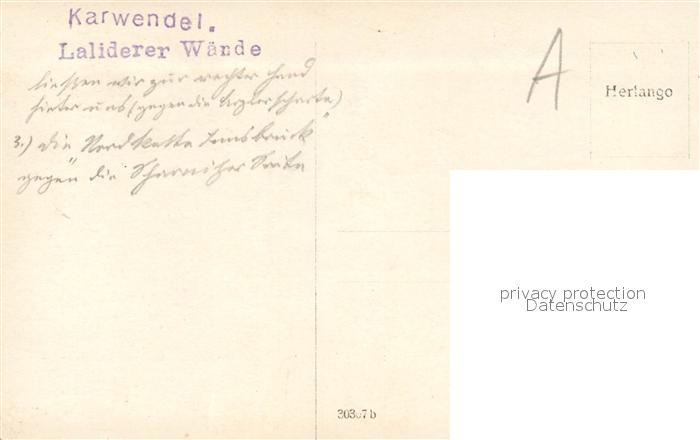 Karwendel.
Laliderer Wände
ließen wir zur rechten Hand
hinter uns (gegen die
3.) Die Nordkette Innsbruck"
gegen die Scharnitzer Seite
A
Herlango
privacy protection
Datenschutz